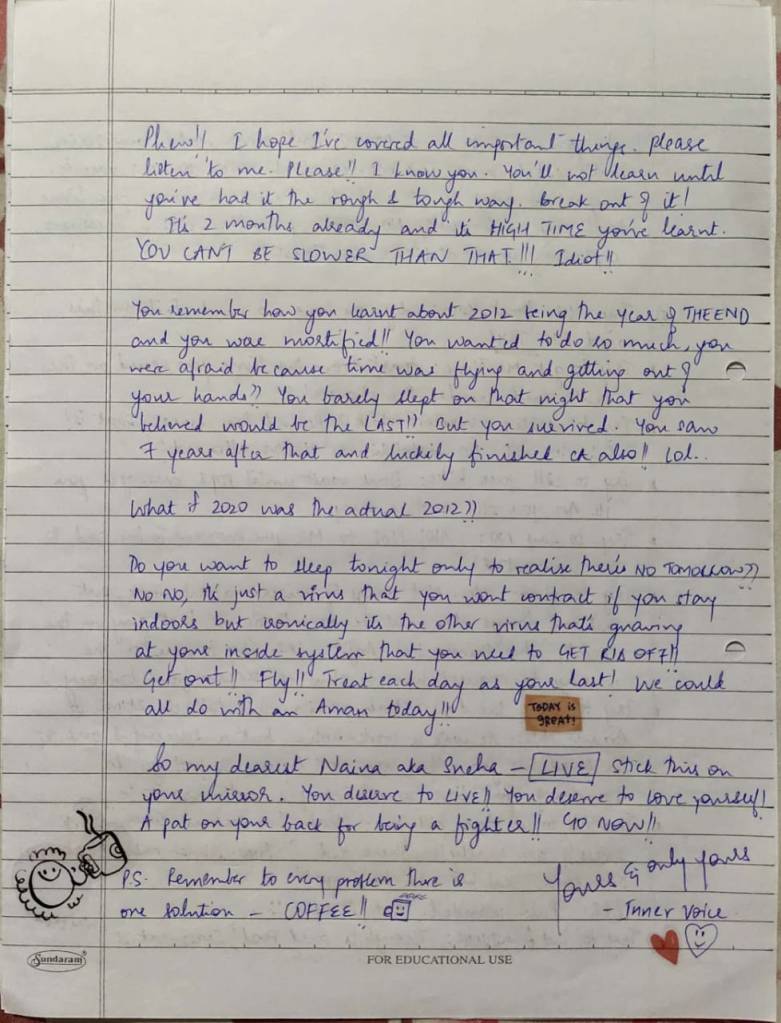 Phew!! I hope I've covered all important things. please
listen to me. Please!! I know you. You'll not learn until
you've had it the rough & tough way. Break out of it!
It's 2 months already and it's HIGH TIME you've learnt.
YOU CAN'T BE SLOWER THAN THAT!!! Idiot!!
You remember how you learnt about 2012 being the year of THE END
and you were mortified!! You wanted to do so much, you
were afraid because time was flying and getting out of
your hands?? You barely slept on that night that you
believed would be the LAST!! But you survived. You saw
7 years after that and luckily finished CA also!! Lol..
What if 2020 was the actual 2012??
Do you want to sleep tonight only to realise there's NO TOMORROW??
No No, it's just a virus that you wont contract if you stay
indoors but ironically its the other virus that's gnawing
at your inside system that you need to GET RID OF!!
Get out!! Fly!! Treat each day as your last! We could
all do with an Aman today!!
TODAY is
gREAT!
So my dearest Naina aka Sneha - LIVE Stick this on
your mirror. You deserve to LIVE!! You deserve to love yourself!
A pat on your back for being a fighter!! GO NOW!!
P.S. Remember to every problem there is
one solution - COFFEE!!
Yours & only yours
- Inner Voice
Sundaram®
FOR EDUCATIONAL USE